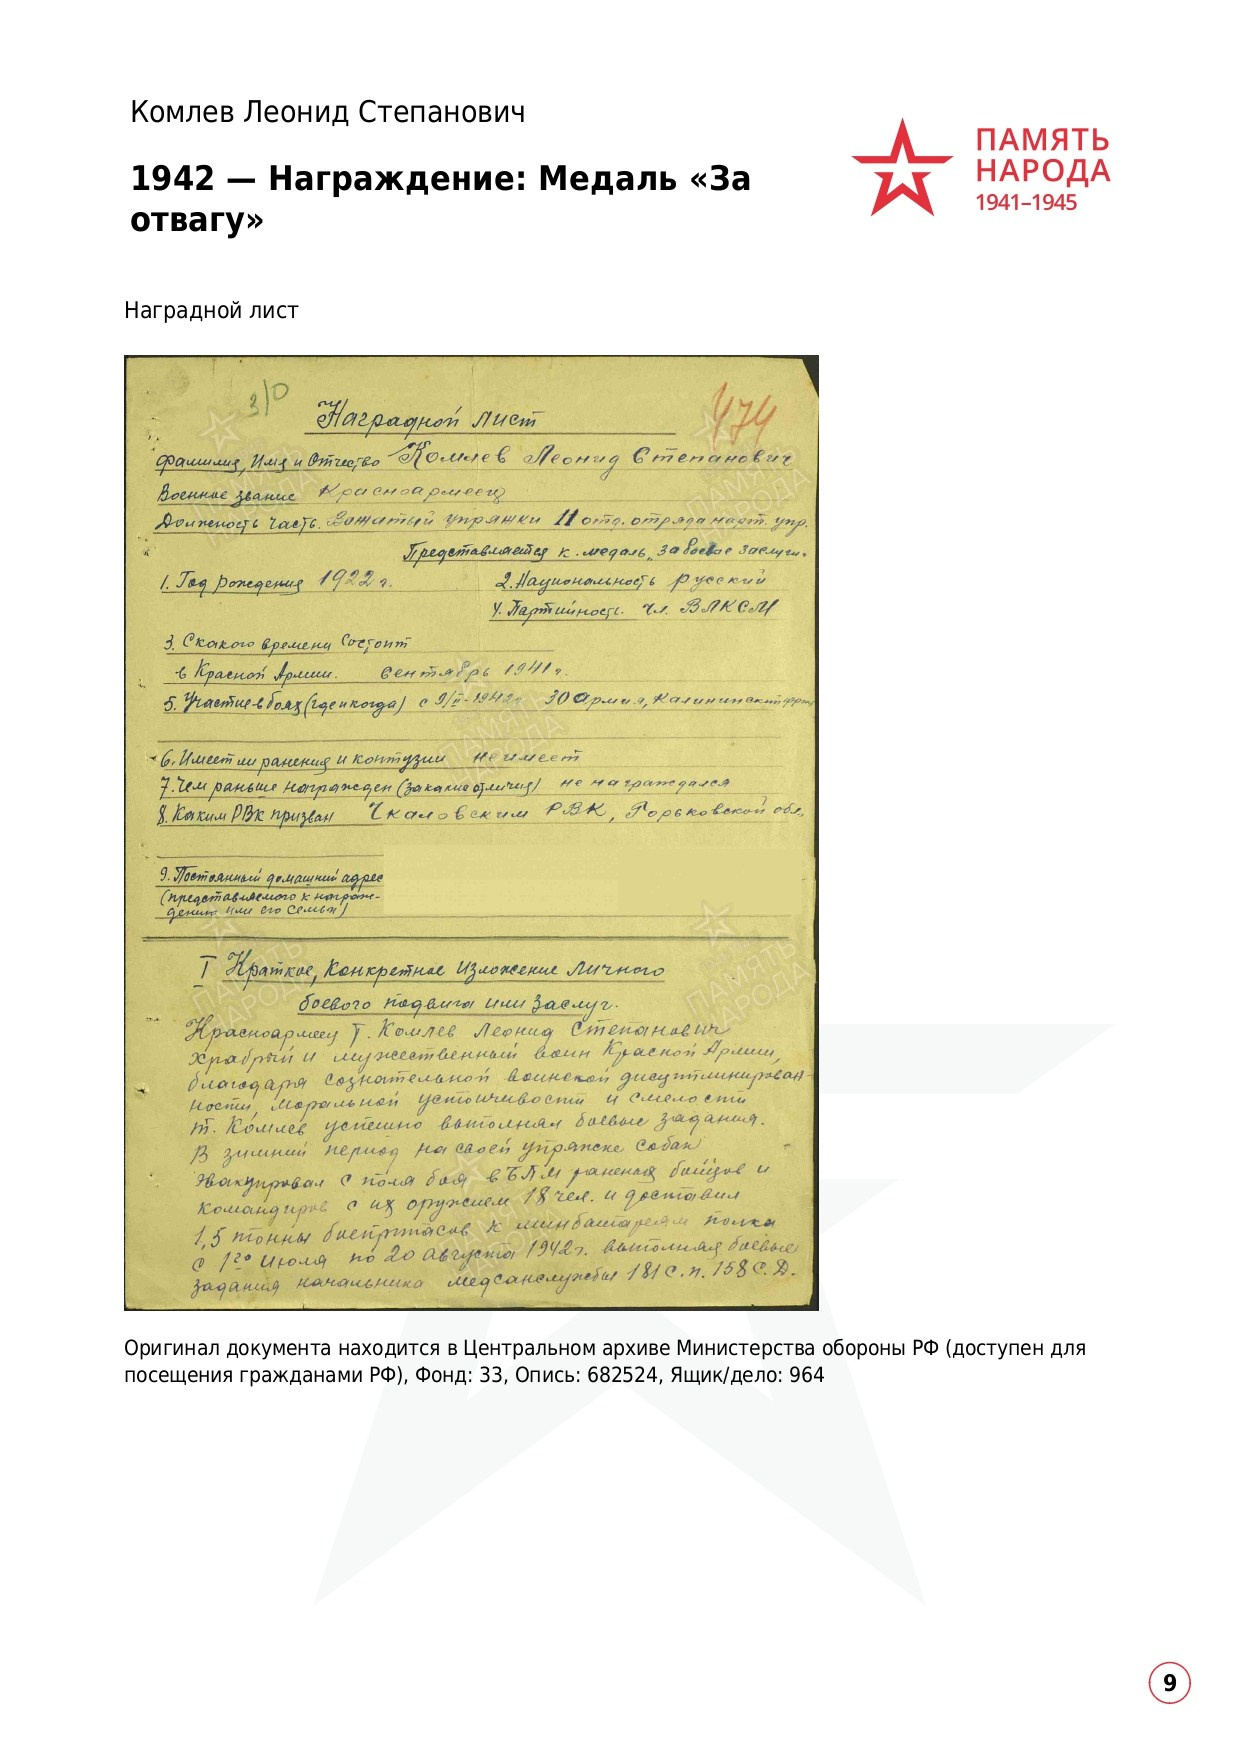 Комлев Леонид Степанович
1942 — Награждение: Медаль «За
отвагу»
ПАМЯТЬ
НАРОДА
1941–1945
Наградной лист
3/0
474
Наградной лист
Фамилия, Имя и Отчество Комлев Леонид Степанович
Военное звание Красноармеец
Должность часть. Вожатый упряжки 11 отд. отряда нарт. упр.
Представляется к . медаль „За боевые заслуги.
1. Год рождения 1922 г. 2. Национальность русский
4. Партийность. чл. ВЛКСМ
3. С какого времени состоит
в Красной Армии. сентябрь 1941 г.
5. Участие в боях (где и когда) с 9/II-1942г 30 Армия, Калининский фронт
6. Имеет ли ранения и контузии не имеет
7. Чем раньше награжден (за какие отличия) не награждался
8. Каким РВК призван Чкаловским РВК, Горьковской обл.
9. Постоянный домашний адрес
(представляемого к награж-
дению или его семьи)
I Краткое, Конкретное изложение личного
боевого подвига или заслуг.
Красноармеец т. Комлев Леонид Степанович
храбрый и мужественный воин Красной Армии,
благодаря сознательной воинской дисциплинирован-
ности, моральной устойчивости и смелости
т. Комлев успешно выполнял боевые задания.
В зимний период на своей упряжке собак
эвакуировал с поля боя в БПМ раненых бойцов и
командиров с их оружием 18 чел. и доставил
1,5 тонны боеприпасов к минбатареям полка
с 1го июля по 20 августа 1942г. выполняя боевые
задания начальника медсанслужбы 181 С. п. 158 С. Д.
Оригинал документа находится в Центральном архиве Министерства обороны РФ (доступен для
посещения гражданами РФ), Фонд: 33, Опись: 682524, Ящик/дело: 964
9